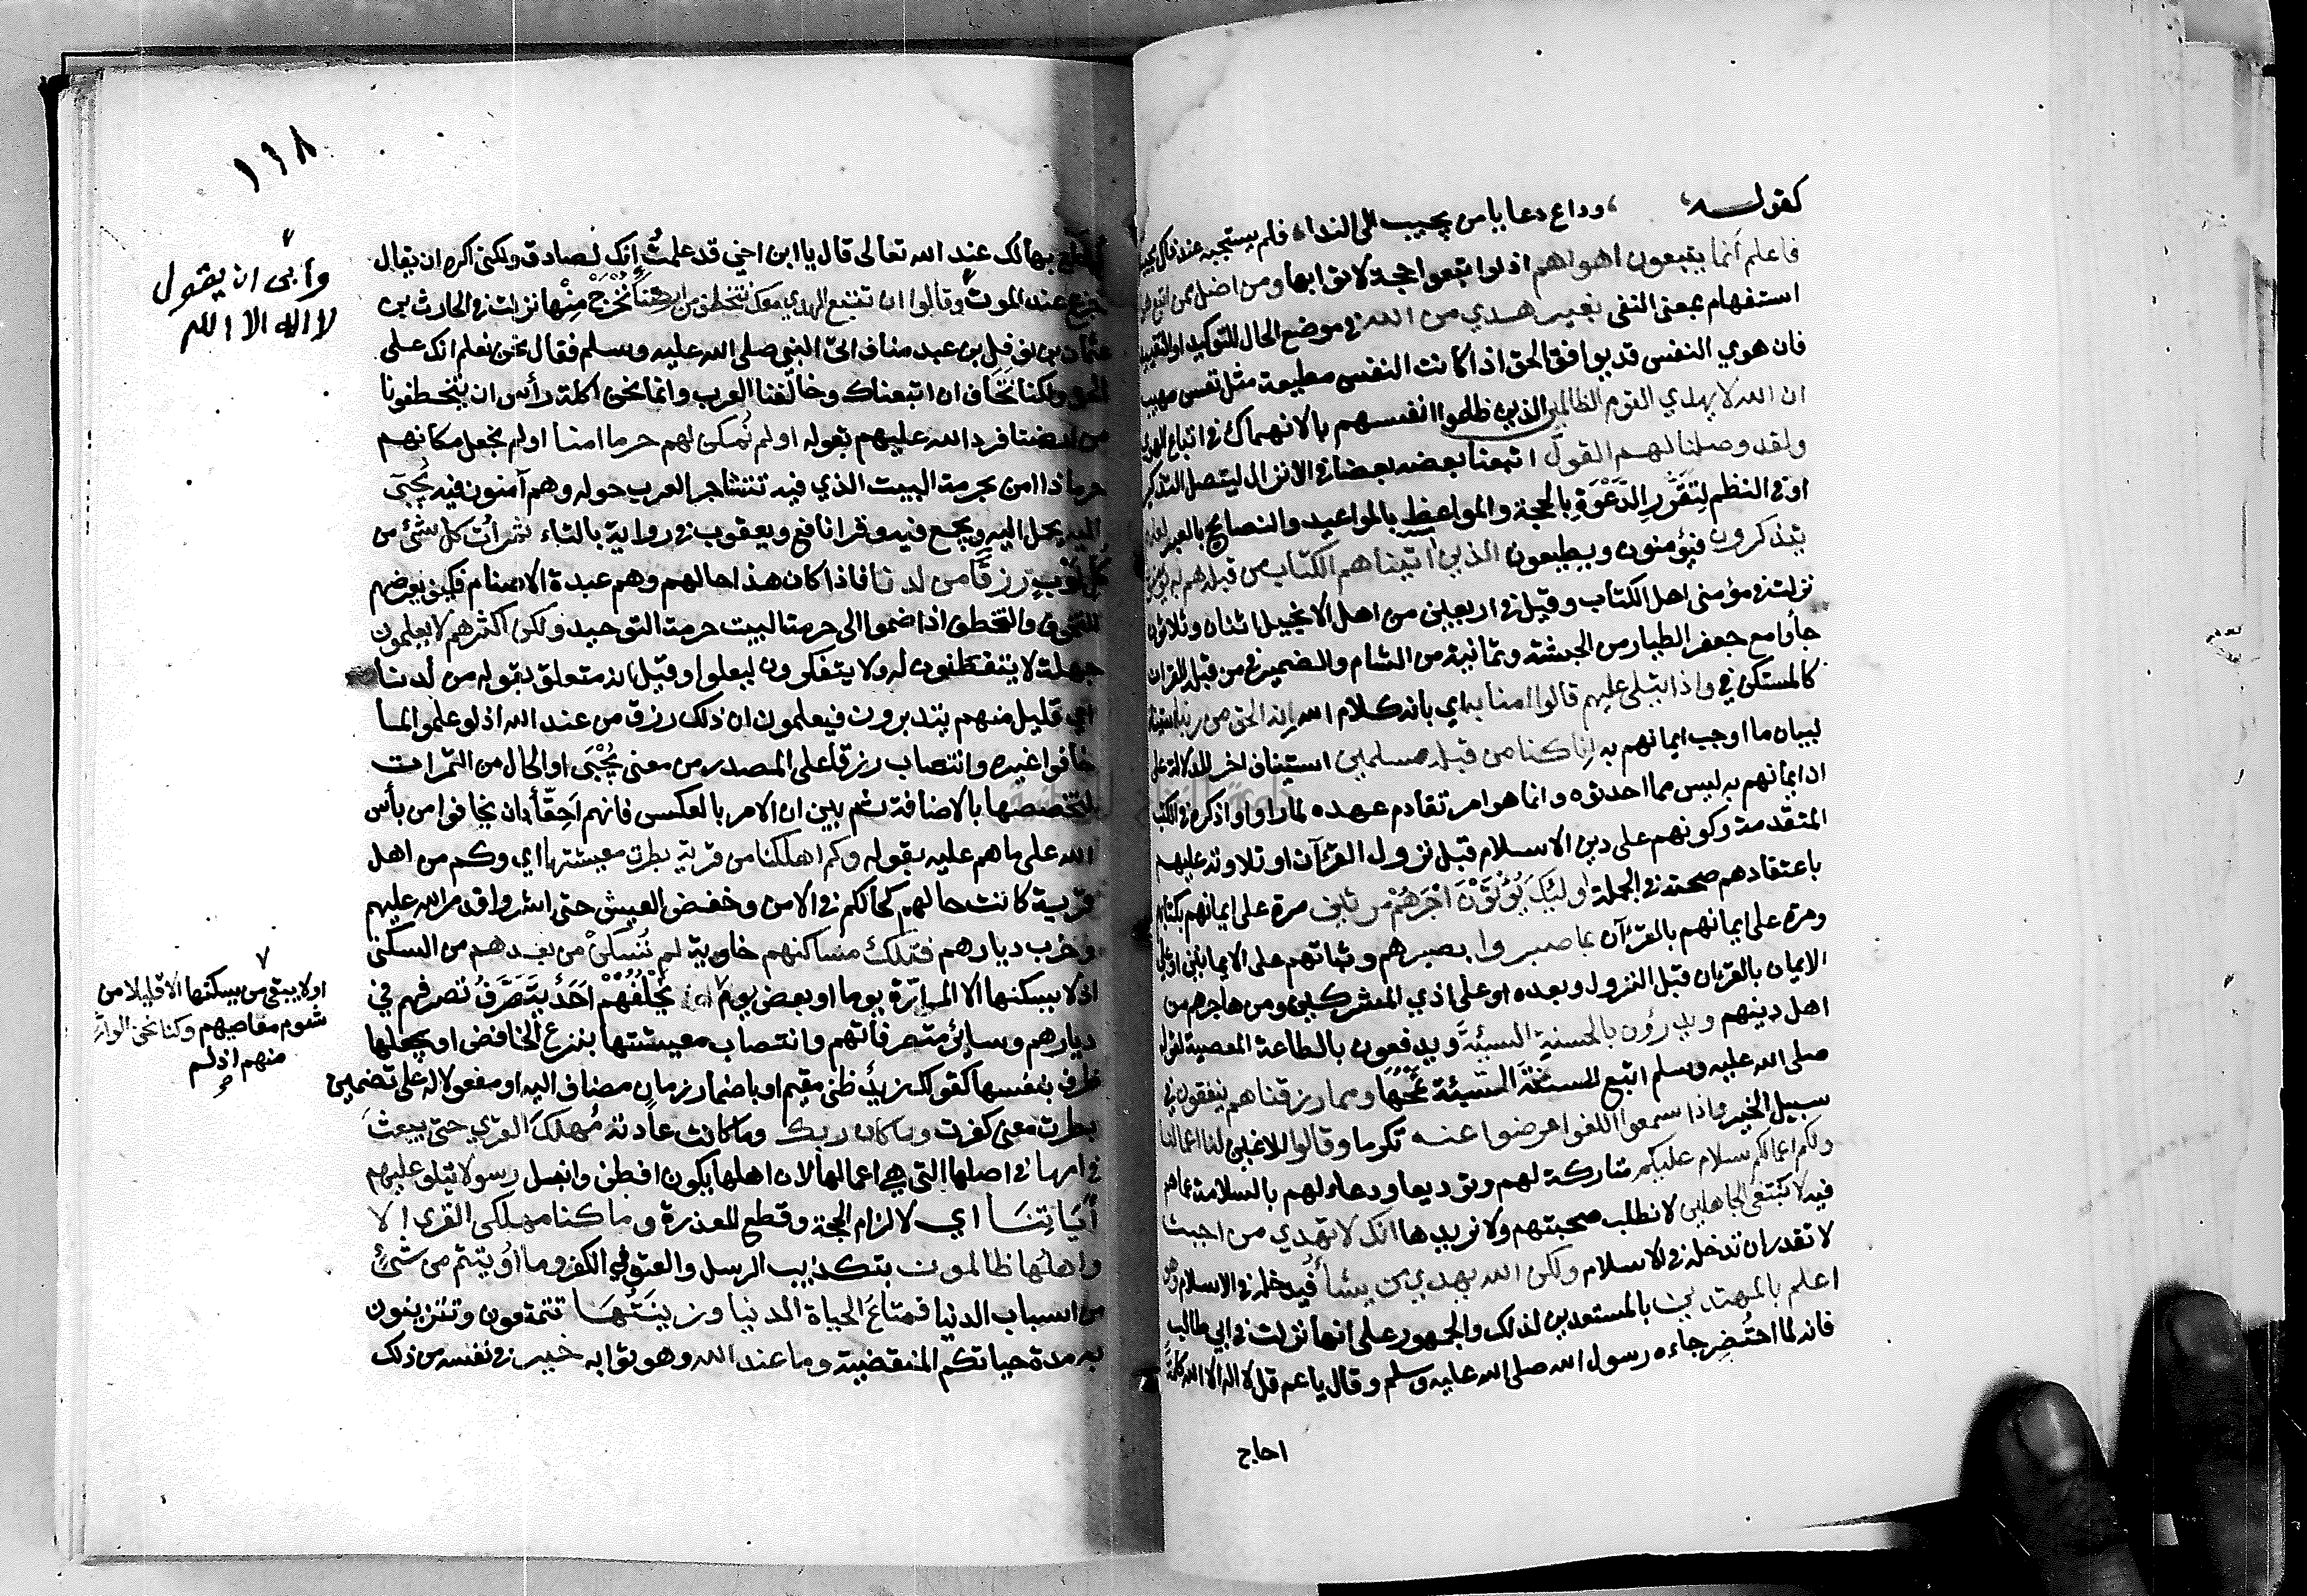 كقوله، وداع دعا يا من يجيب الى النداء فلم يستجبه عند ذاك مجيب
فاعلم أنما يتبعون اهواهم اذ لو اتبعوا حجة لاتوا بها ومن اضل ممن اتبع
استفهام بمعنى النفى بغير هدي من الله في موضع الحال للتوكيد او التقييد
فان هوي النفس قد يوافق الحق اذا كانت النفس مطيعة مثل نفس صهيب
ان الله لا يهدي القوم الظالمين الذين ظلموا انفسهم بالانهماك في اتباع الهوي
ولقد وصلنا لهم القول اتبعنا بعضه بعضا في الانزال ليتصل التذكير
او في النظم لِتَقَرُّرِ الدَّعْوَةِ بالحجة والمواعظ بالمواعيد والنصائح بالعبر لعلهم
يتذكرون فيؤمنون ويطيعون الذين اتيناهم الكتاب من قبله هم به يؤمنون
نزلت في مؤمني اهل الكتاب وقيل في اربعين من اهل الانجيل اثنان وثلاثون
جاؤا مع جعفر الطيار من الحبشة وثمانية من الشام والضمير في من قبله للقران
كالمستكن في واذا يتلى عليهم قالوا امنا به اي بانه كلام الله انه الحق من ربنا استيناف
لبيان ما اوجب ايمانهم به انا كنا من قبله مسلمين استيناف اخر للدلالة على
ان ايمانهم به ليس مما احدثوه وانما هو امر تقادم عهده لما راوا ذكره في الكتب
المتقدمة وكونهم على دين الاسلام قبل نزول القرآن او تلاوته عليهم
باعتقادهم صحته في الجملة اولئِكَ يُؤْتَوْنَ اَجْرَهُمْ مرتين مرة على ايمانهم بكتابهم
ومرة على ايمانهم بالقرآن بما صبروا بصبرهم وثباتهم على الايمانين او على
الايمان بالقران قبل النزول وبعده او على اذي المشركين ومن هاجرهم من
اهل دينهم ويدرؤن بالحسنة السيئة ويدفعون بالطاعة المعصية لقوله
صلى الله عليه وسلم اتبع السيئة الحسنة تمحها ومما رزقناهم ينفقون في
سبيل الخير واذا سمعوا اللغو اعرضوا عنه تكرما وقالوا للاغين لنا اعمالنا
ولكم اعمالكم سلام عليكم متاركة لهم وتوديعا ودعاء لهم بالسلامة عما هم
فيه لا نبتغي الجاهلين لا نطلب صحبتهم ولا نريدها انك لا تهدي من احببت
لا تقدر ان تدخله في الاسلام ولكن الله يهدي من يشأ فيدخله في الاسلام وهو
اعلم بالمهتدين بالمستعدين لذلك والجمهور على انها نزلت في ابي طالب
فانه لما احتُضِر جاءه رسول الله صلى الله عليه وسلم وقال يا عم قل لا اله الا الله كلمة
احاج
١٦٨
بها لك عند الله تعالى قال يا ابن اخي قد علمتُ إنك لصادق ولكنى اكره ان يقال
جزع عند الموت وقالوا ان نتبع الهدي معك نتخطف من ارضنا نُخْرَجْ مِنْها نزلت في الحارث بن
عثمان بن نوفل بن عبد مناف اتى النبي صلى الله عليه وسلم فقال نحن نعلم انك على
الحق ولكنا نخاف ان اتبعناك وخالفنا العرب وانما نحن اكلة رأس ان يتخطفونا
من ارضنا فرد الله عليهم بقوله اولم نُمكن لهم حرما امنا اولم نجعل مكانهم
حرما ذا امن بحرمة البيت الذي فيه تتناحر العرب حوله وهم آمنون فيه يُجبَى
اليه يحمل اليه ويجمع فيه وقرا نافع ويعقوب في رواية بالتاء ثمرات كل شئ من
كل اوب رزقا من لدنا فاذا كان هذا حالهم وهم عبدة الاصنام فكيف يعرضهم
للتخوف والتخطف اذا ضموا الى حرمة البيت حرمة التوحيد ولكن اكثرهم لا يعلمون
جهلة لا يتفطنون له ولا يتفكرون ليعلموا وقيل انه متعلق بقوله من لدنا
اي قليل منهم يتدبرون فيعلمون ان ذلك رزق من عند الله اذ لو علموا لما
خافوا غيره وانتصاب رزقا على المصدر من معنى يُجْبَى او الحال من الثمرات
لتخصصها بالاضافة ثم بين ان الامر بالعكس فانهم اَحِقّأ بان يخافوا من بأس
الله على ما هم عليه بقوله وكم اهلكنا من قرية بطرت معيشتها اي وكم من اهل
قرية كانت حالهم كحالكم في الامن وخفض العيش حتى اشروا فدمر الله عليهم
وخرب ديارهم فتلك مساكنهم خاوية لم تُسْكَنْ من بعدهم من السكنى
اذ لا يسكنها الا المارّة يوما او بعض يوم يَخْلُفُهُمْ اَحَدٌ يتَصَرَّفُ تصرفهم في
ديارهم وسائر متصرفاتهم وانتصاب معيشتها بنزع الخافض او بجعلها
ظرفا بنفسها كقولك زيد ظنى مقيم او باضمار زمان مضاف اليه او مفعولا له على تضمين
بطرت معنى كفرت وما كان ربك وما كانت عادته مُهلك القري حتى يبعث
في امها في اصلها التي هي اعمالها لان اهلها يكون افطن وانبل رسولا يتلو عليهم
أياتِنَا اي لالزام الحجة وقطع المعذرة وما كنا مهلكى القرى الا
واهلُها ظالمون بتكذيب الرسل والعتو في الكفر وما اُوتيتم من شئ
من اسباب الدنيا فمتاعَ الحياة الدنيا وزينَتُهَا تتمتعون وتتزينون
به مدة حياتكم المنقضية وما عند الله وهو ثوابه خير في نفسه من ذلك
وأبى ان يقول
لا اله الا الله
او لا يبقى من يسكنها الا قليلا من
شوم معاصيهم وكنا نحن الوارثين
منهم اذ لم